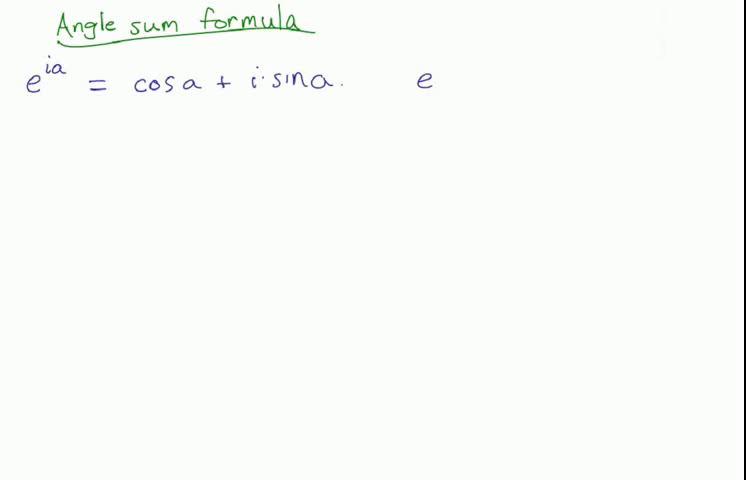 Angle sum formula
e^{ia} = cos a + i · sin a. e